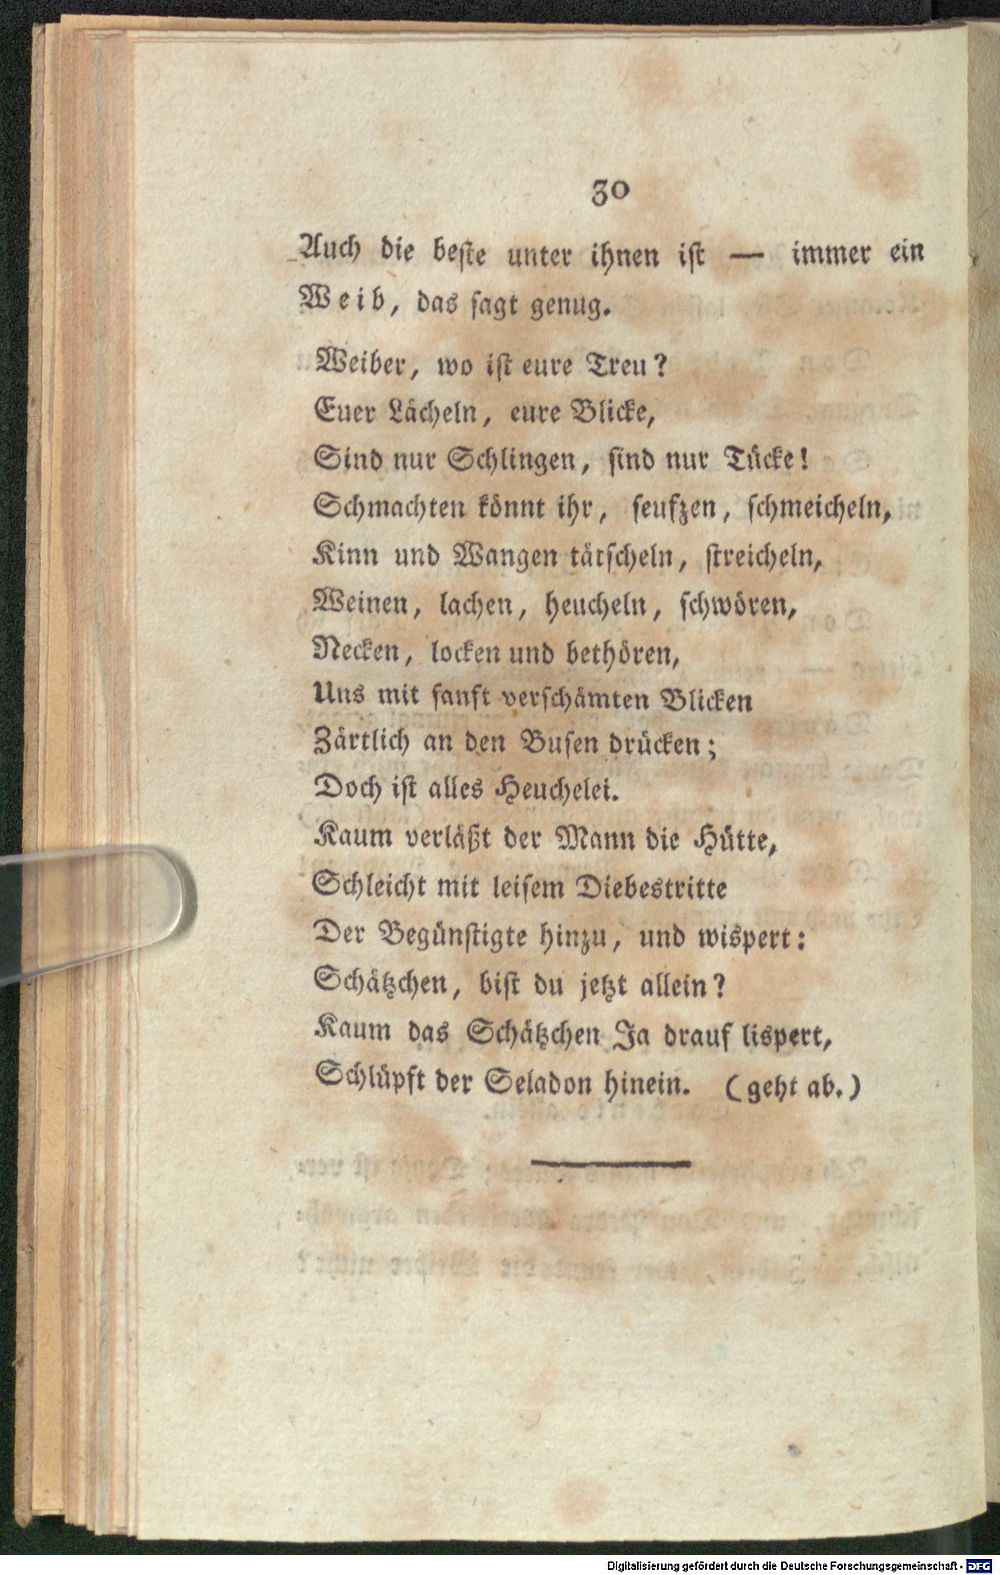 30
Auch die beste unter ihnen ist — immer ein
Weib, das sagt genug.
Weiber, wo ist eure Treu?
Euer Lächeln, eure Blicke,
Sind nur Schlingen, sind nur Tücke!
Schmachten könnt ihr, seufzen, schmeicheln,
Kinn und Wangen tätscheln, streicheln,
Weinen, lachen, heucheln, schwören,
Necken, locken und bethören,
Uns mit sanft verschämten Blicken
Zärtlich an den Busen drücken;
Doch ist alles Heuchelei.
Kaum verläßt der Mann die Hütte,
Schleicht mit leisem Diebestritte
Der Begünstigte hinzu, und wispert:
Schätzchen, bist du jetzt allein?
Kaum das Schätzchen Ja drauf lispert,
Schlüpft der Seladon hinein. (geht ab.)
Digitalisierung gefördert durch die Deutsche Forschungsgemeinschaft - DFG